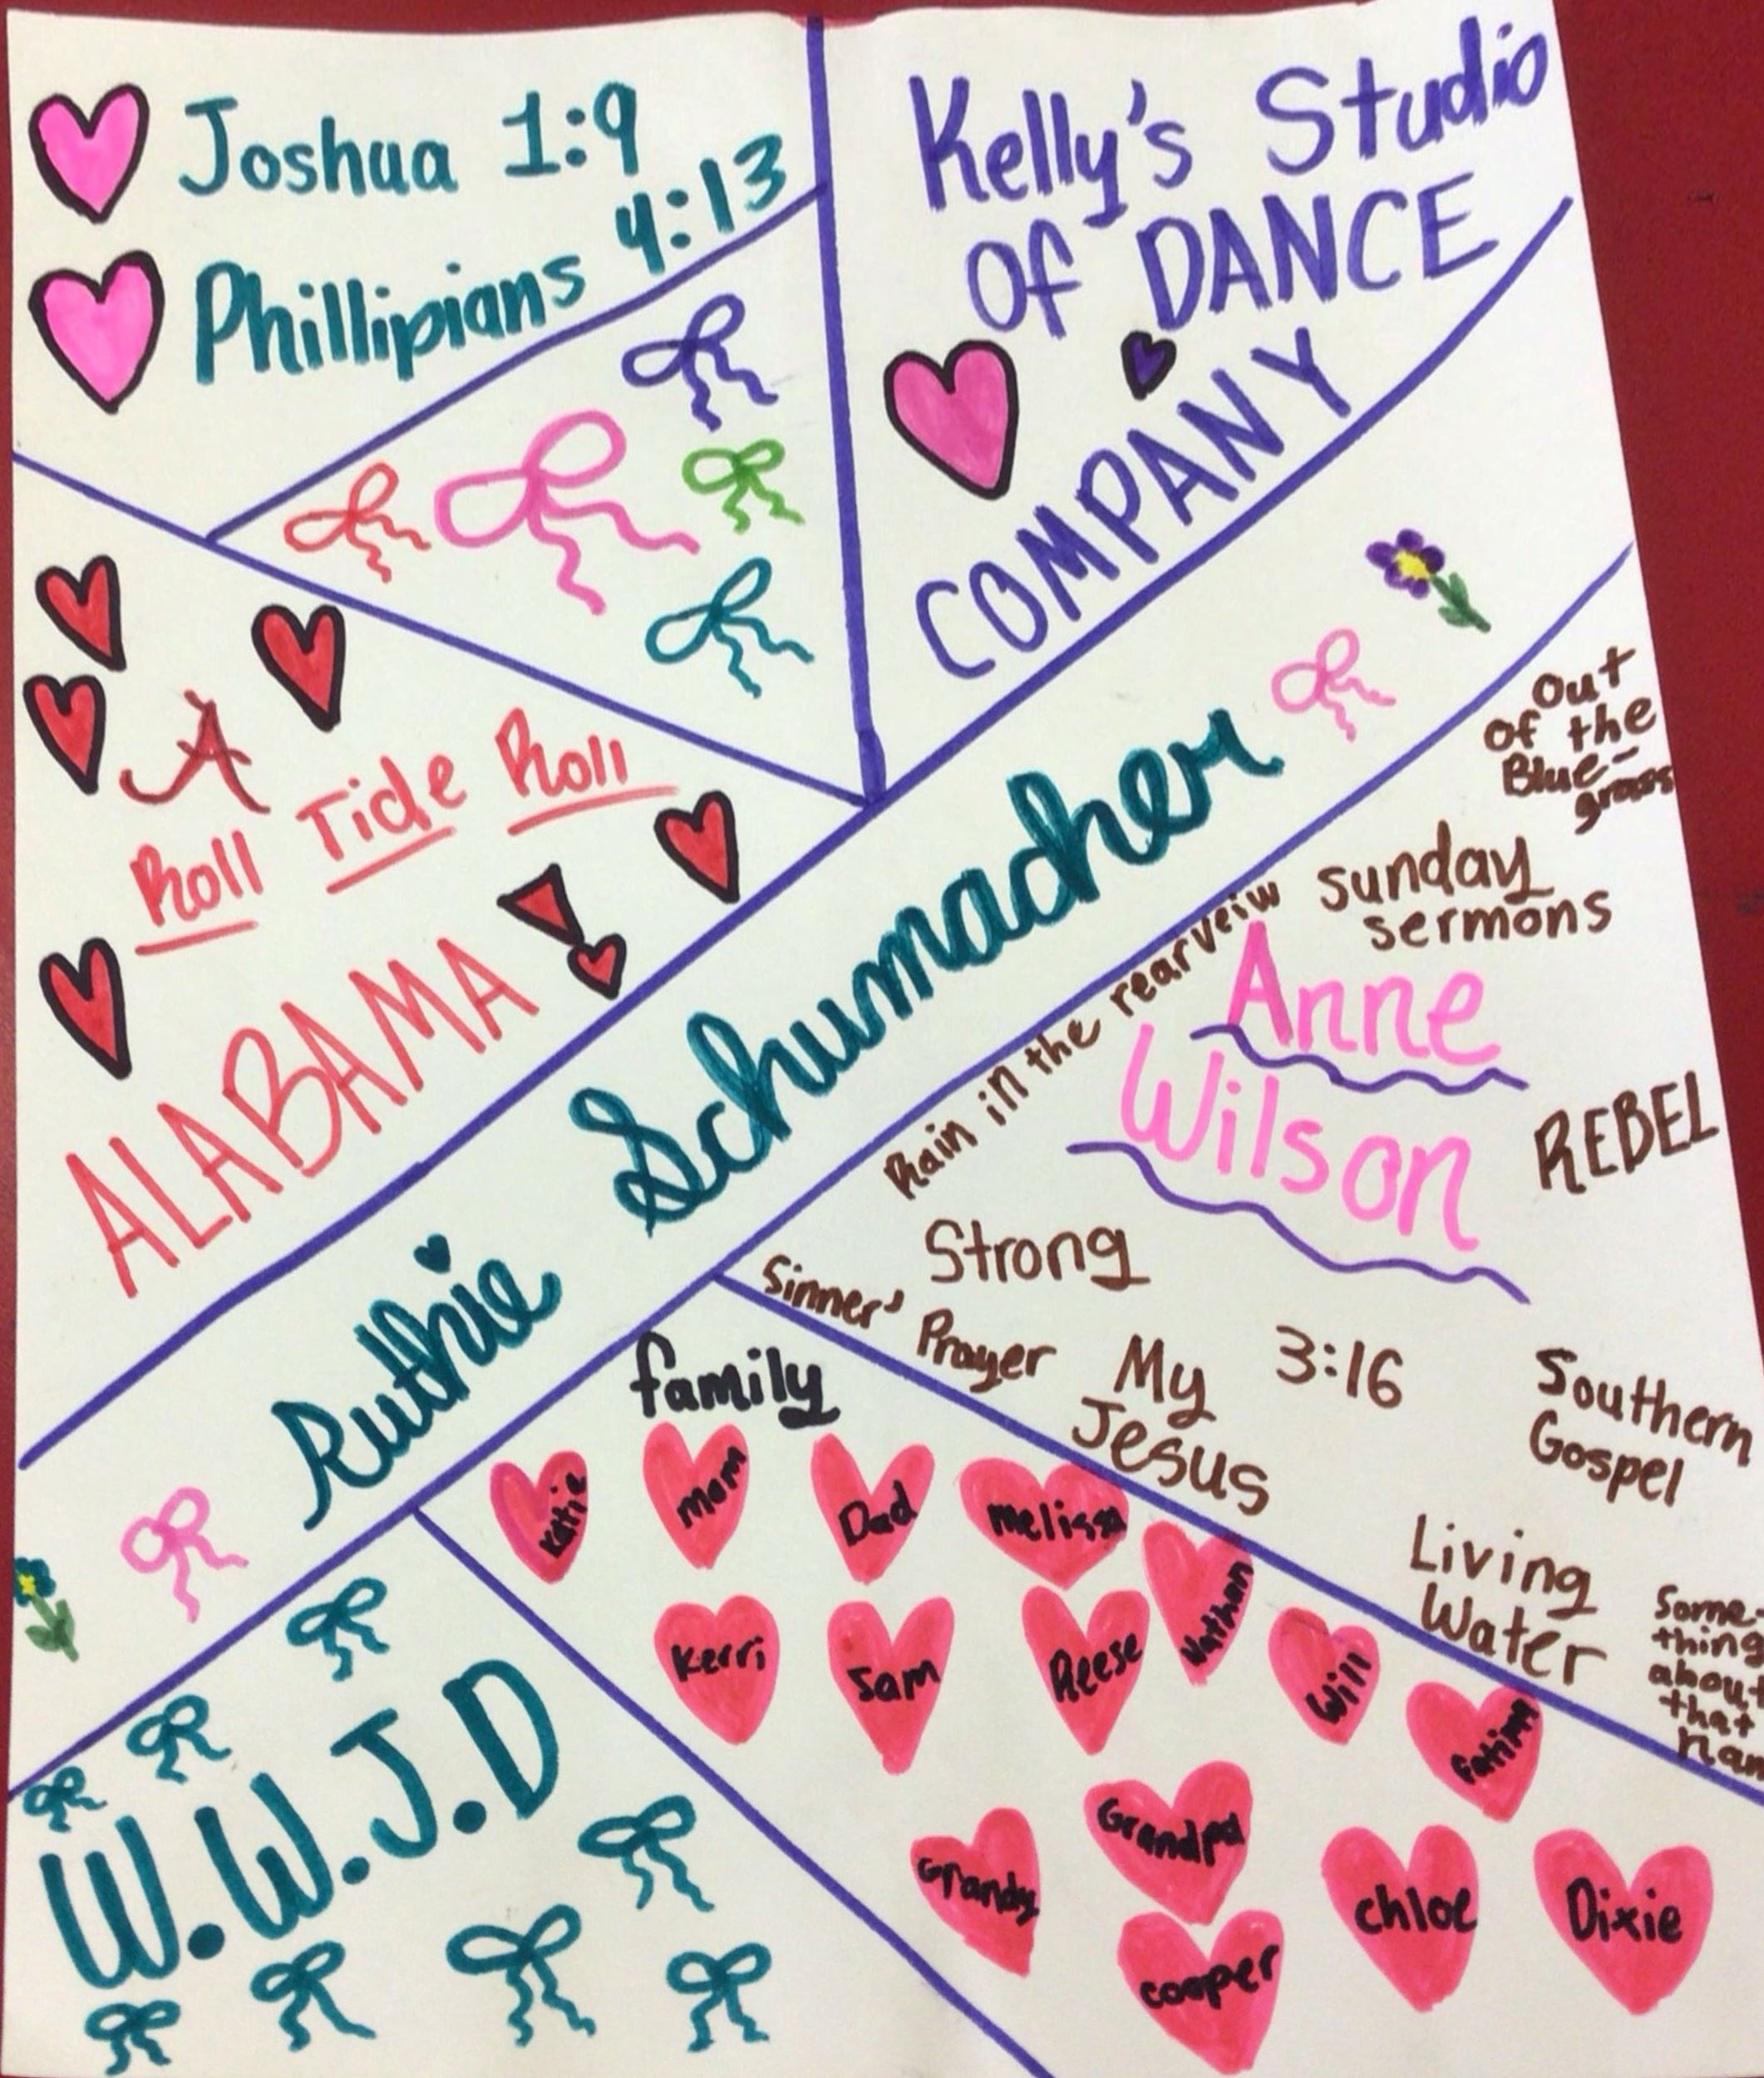 Joshua 1:9
Phillipians 4:13
Kelly's Studio
Of DANCE
COMPANY
A
Roll Tide Roll
ALABAMA
Ruthie Schumacher
Out
of the
Blue-
grass
Sunday
sermons
Rain in the rearveiw
Anne
Wilson
REBEL
Strong
Sinner'
Prayer
My
Jesus
3:16
Southern
Gospel
Living
Water
Some-
thing
about
that
nam
family
Katie
Mom
Dad
Melissa
Nathan
Kerri
Sam
Reese
Will
Fatima
Grandpa
Grandy
Chloe
Dixie
Cooper
W.W.J.D